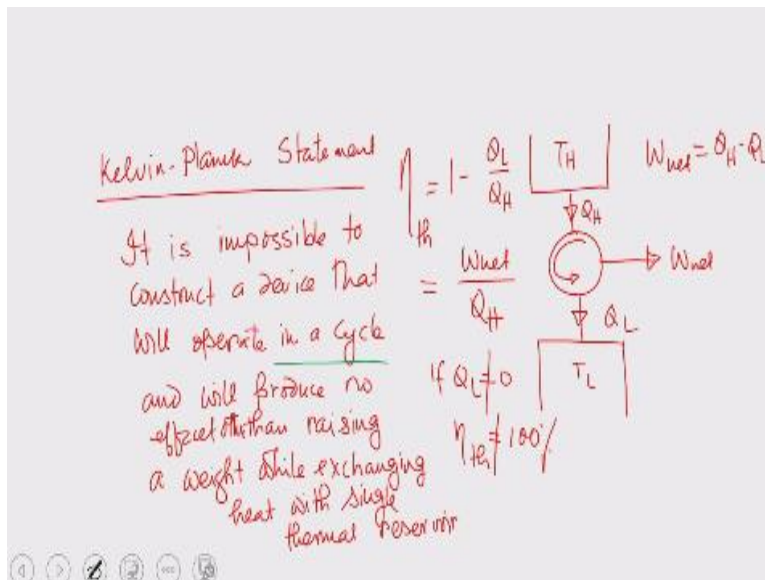 Kelvin-Planck Statement
It is impossible to
construct a device that
will operate in a cycle
and will produce no
effect other than raising
a weight while exchanging
heat with single
thermal reservoir
η_th = 1 - Q_L/Q_H
= W_net/Q_H
if Q_L ≠ 0
η_th ≠ 100%
T_H
Q_H
W_net
Q_L
T_L
W_net = Q_H - Q_L